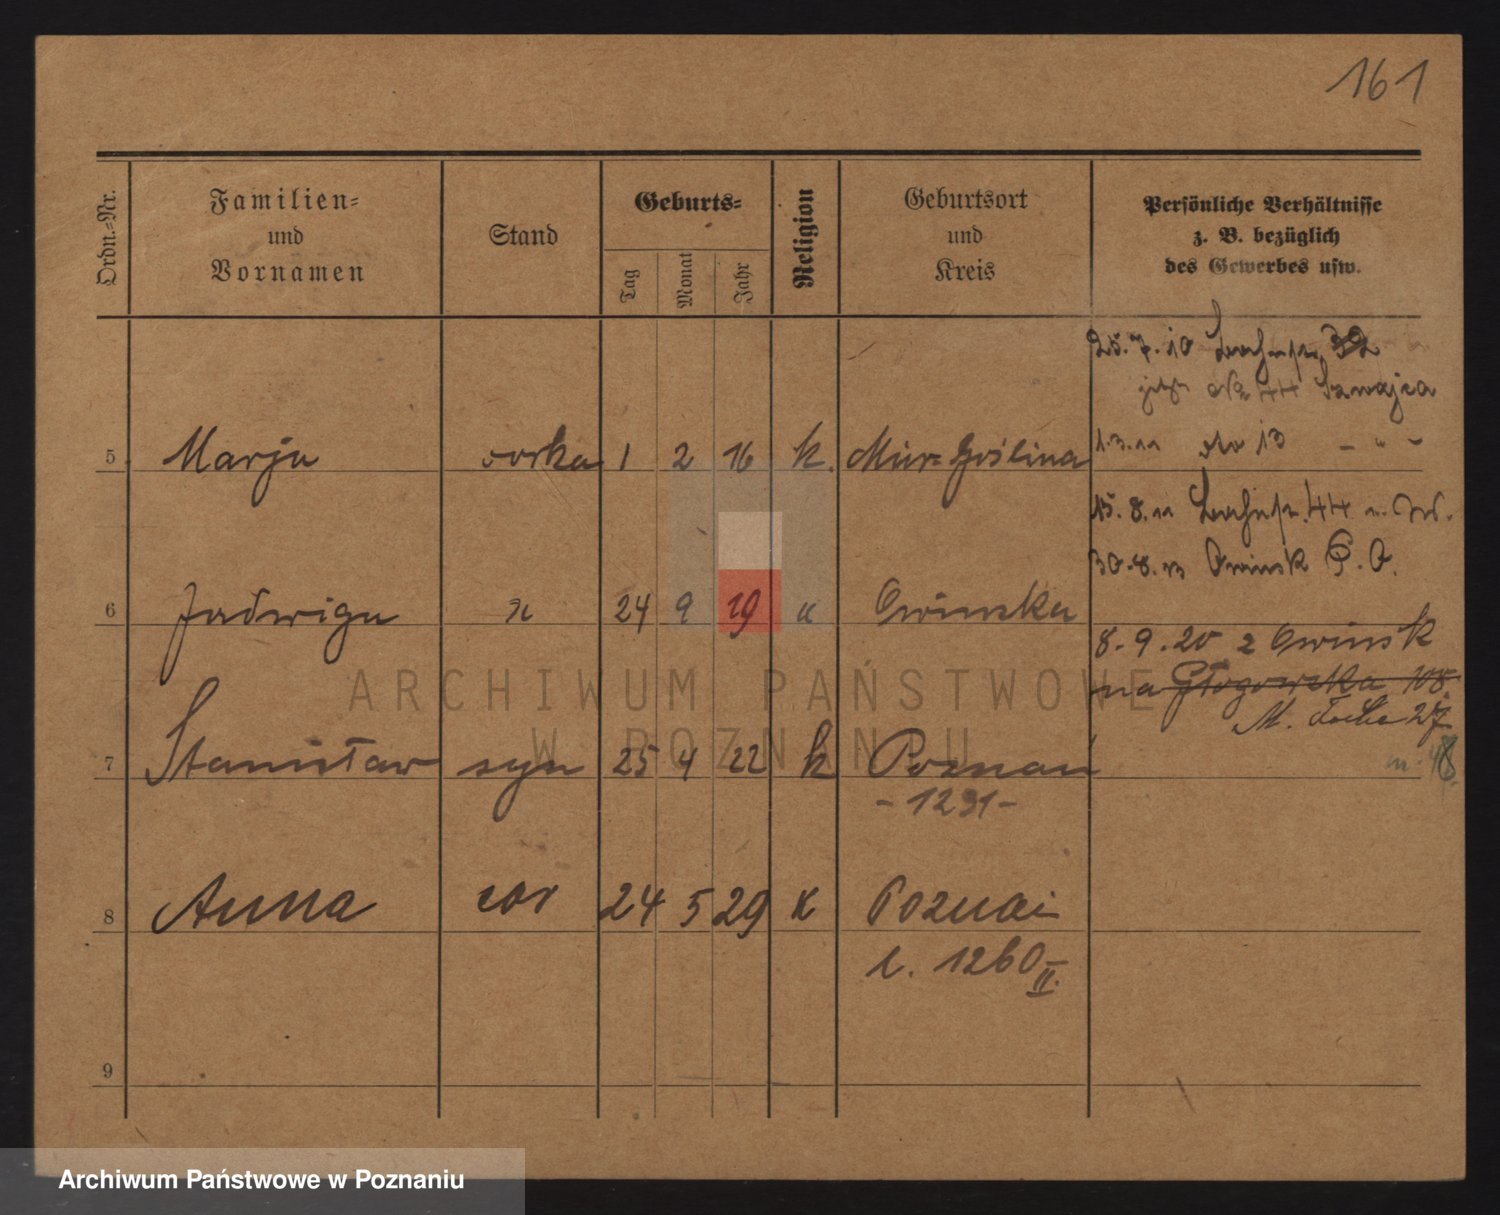 161
Ordn.-Nr.
Familien-
und
Vornamen
Stand
Geburts-
Tag
Monat
Jahr
Religion
Geburtsort
und
Kreis
Persönliche Verhältnisse
z. B. bezüglich
des Gewerbes usw.
25.7.10 32
44 Szwajca
5 Marja corka 1 2 16 k. Mur-Goślina
1.3.11 13 - " -
15.8.11 44
30.8.13 Owinsk P.O.
6 Jadwiga 24 9 19 Owinska
8.9.20 z Owinsk
na Głogowska 108.
M. Focha 27
m. 48
7 Stanisław syn 25 4 22 k Poznań
- 1291 -
8 Anna cor 24 5 29 k Poznań
l. 1260 II.
9
ARCHIWUM PAŃSTWOWE
W POZNANIU
Archiwum Państwowe w Poznaniu